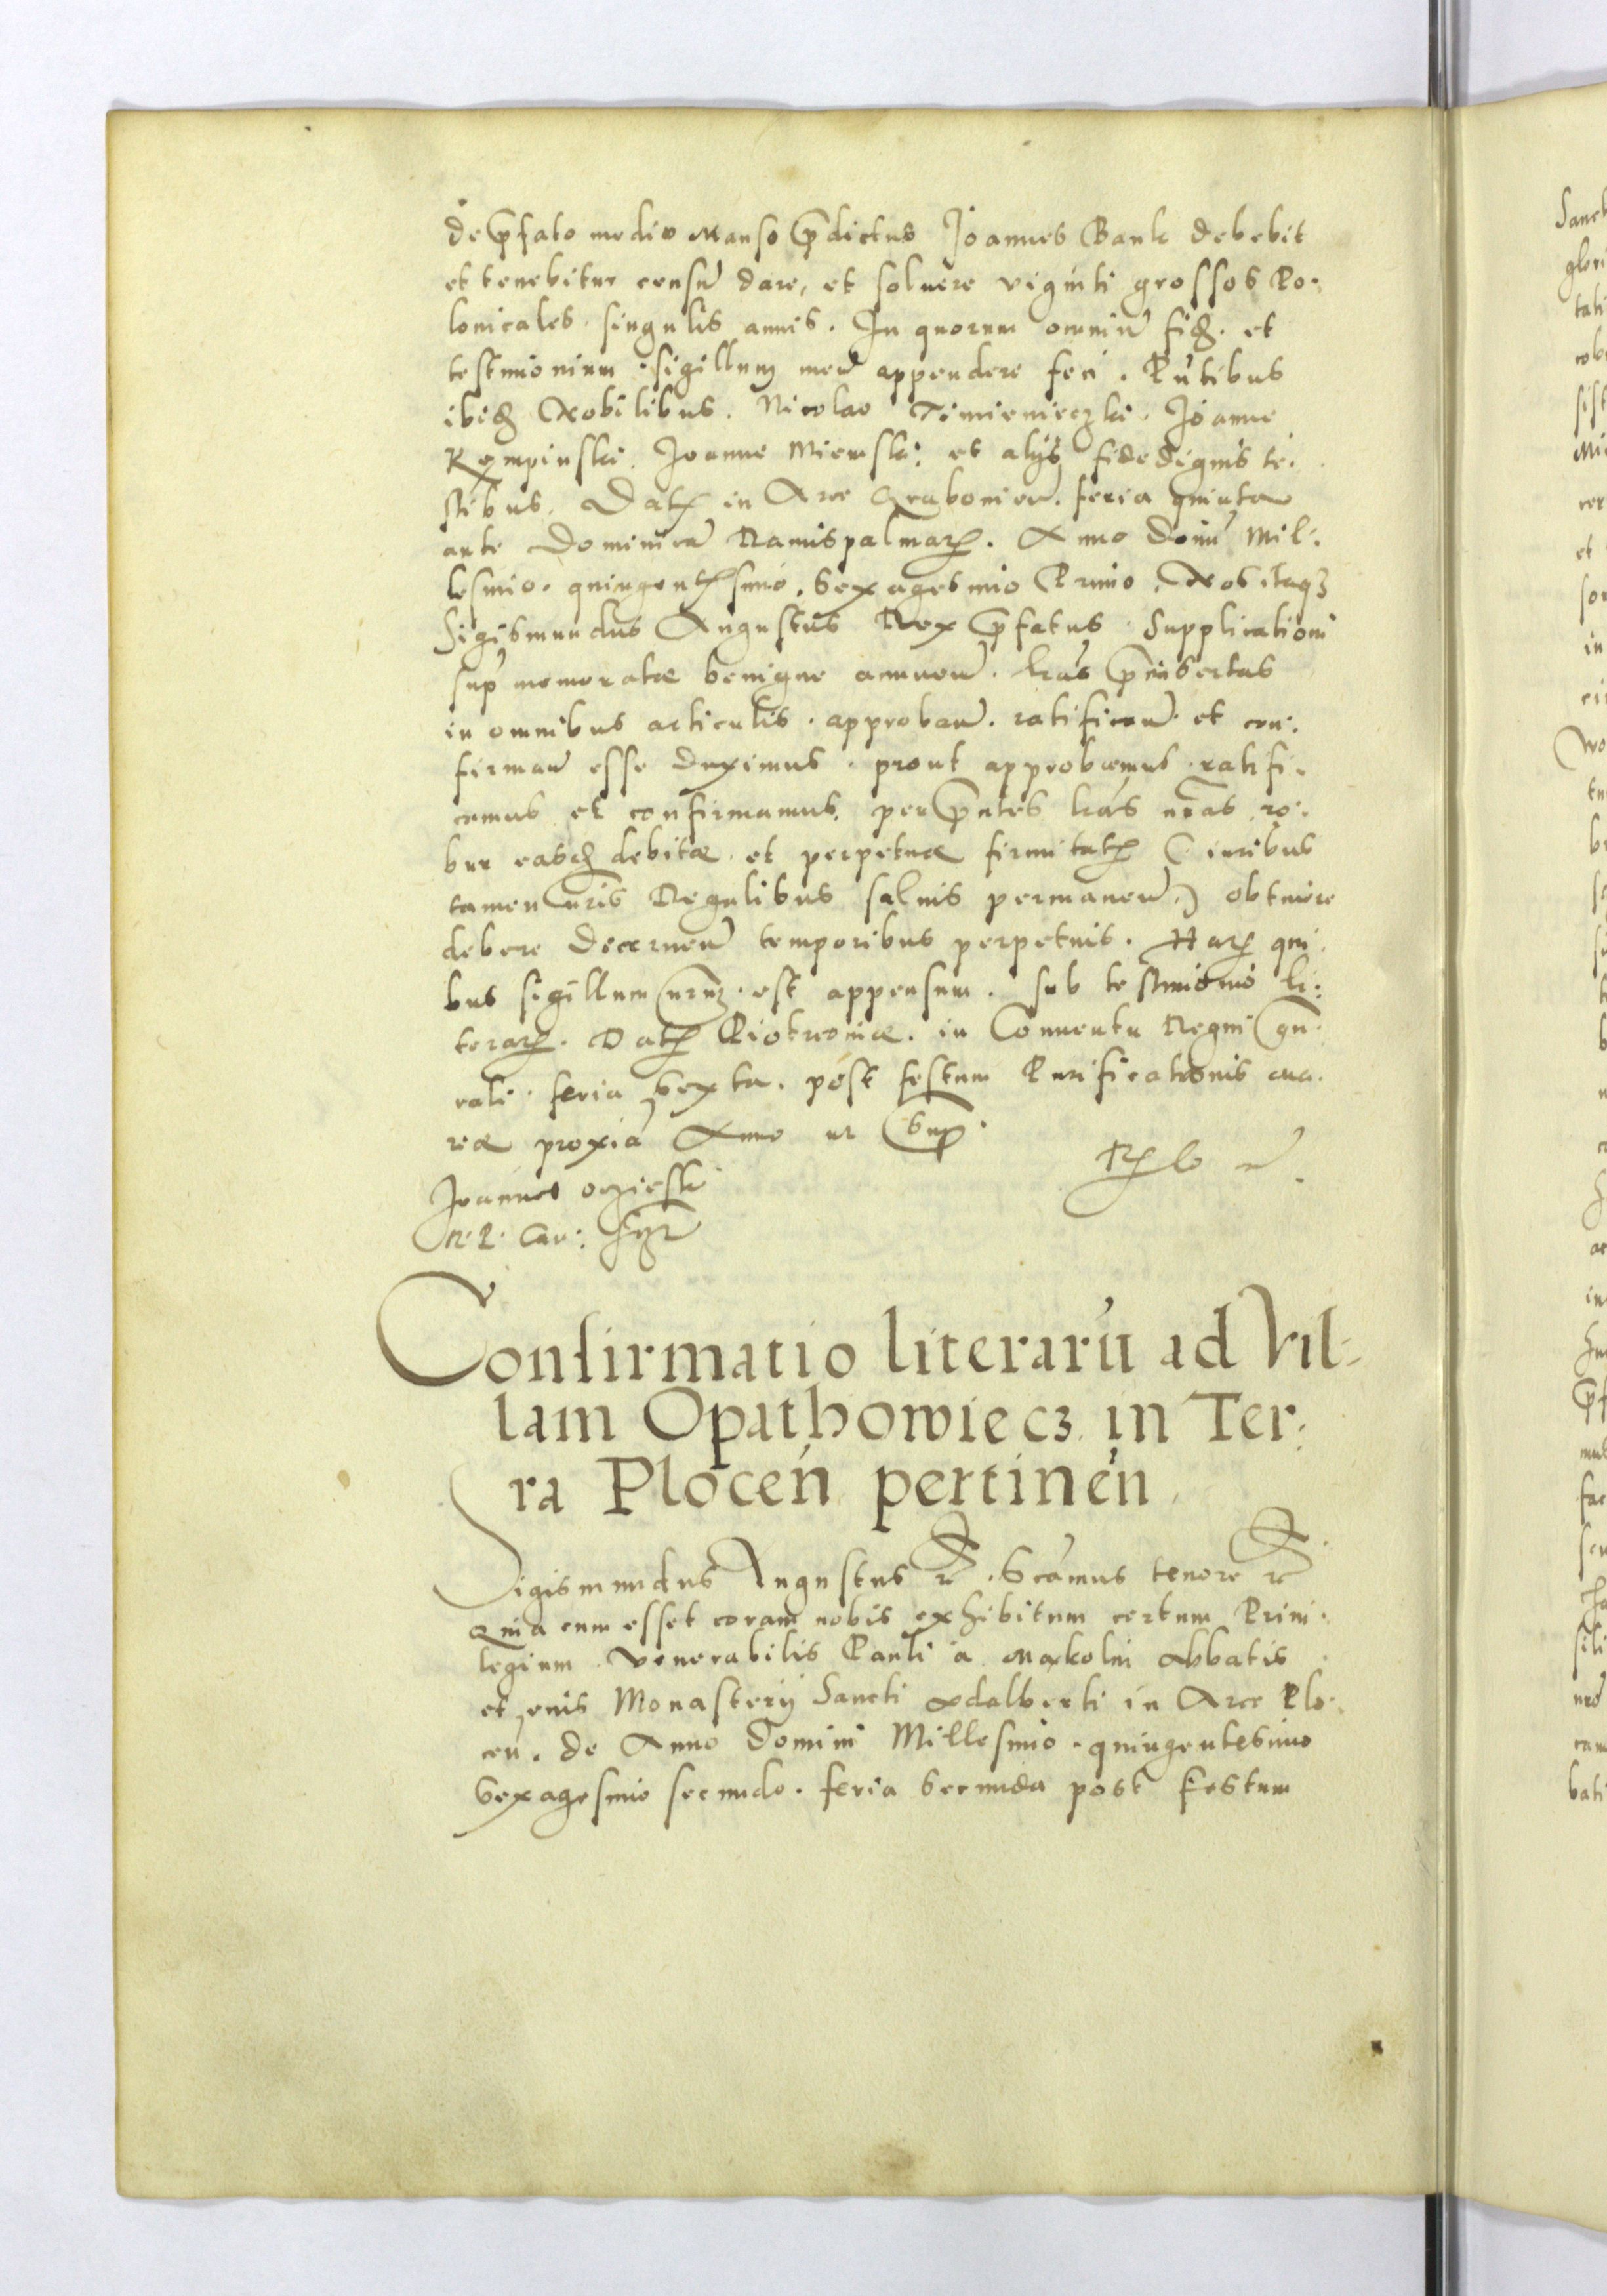 de p̄fato medio Manso p̄dictus Joannes Bank debebit
et tenebitur censū dare, et soluere viginti grossos Po-
lonicales singulis annis. In quorum omniū fidē. et
testimonium sigillum meū appendere feci. P̄ntibus
ibidē Nobilibus. Nicolao Timienieczki. Joanne
Kempinski. Joanne Miemski: et alijs fidedignis te-
stibus. Datē in Arce Graboniēn. feria quinta
ante Dominicā Ramispalmarū. Anno Domī Mil-
lesimo. quingentesimo. Sexagesimo Primo. Nos itaq3
Sigismundus Augustus Rex p̄fatus. Supplicationi
sup memoratæ benigne annuen̄. lr̄as p̄insertas
in omnibus articulis. approban̄. ratifican̄. et con-
firman̄ esse duximus. prout approbamus. ratifi-
camus et confirmamus. per p̄ntes lr̄as nr̄as ro-
bur easdē debitæ et perpetuæ firmitatē (iuribus
tamen nr̄is Regalibus saluis permanen̄.) obtinere
debere decernen̄ temporibus perpetuis. Harū qui-
bus sigillum nr̄um est appensum. sub testimonio li-
terarū. Datē Piotrcouiæ. in Conuentu Regni gn̄-
rali. feria Sexta. post festum Purificationis Ma-
riæ proxiā Anno ut sup̄.
Joannes oczieski
R. P. Can:
Confirmatio literarū ad Vil-
lam Opathowiecz in Ter-
ra Plocen̄ pertinen̄
Sigismundus Augustus rc. Scāmus tenore rc
Quia cum esset coram nobis exhibitum certum Priui-
legium venerabilis Pauli a Markolni Abbatis
et, enis Monasterij Sancti Adalberti in Arce Plo-
cen̄. de Anno Domini Millesimo. quingentesimo
Sexagesimo secundo. feria Secunda post Festum